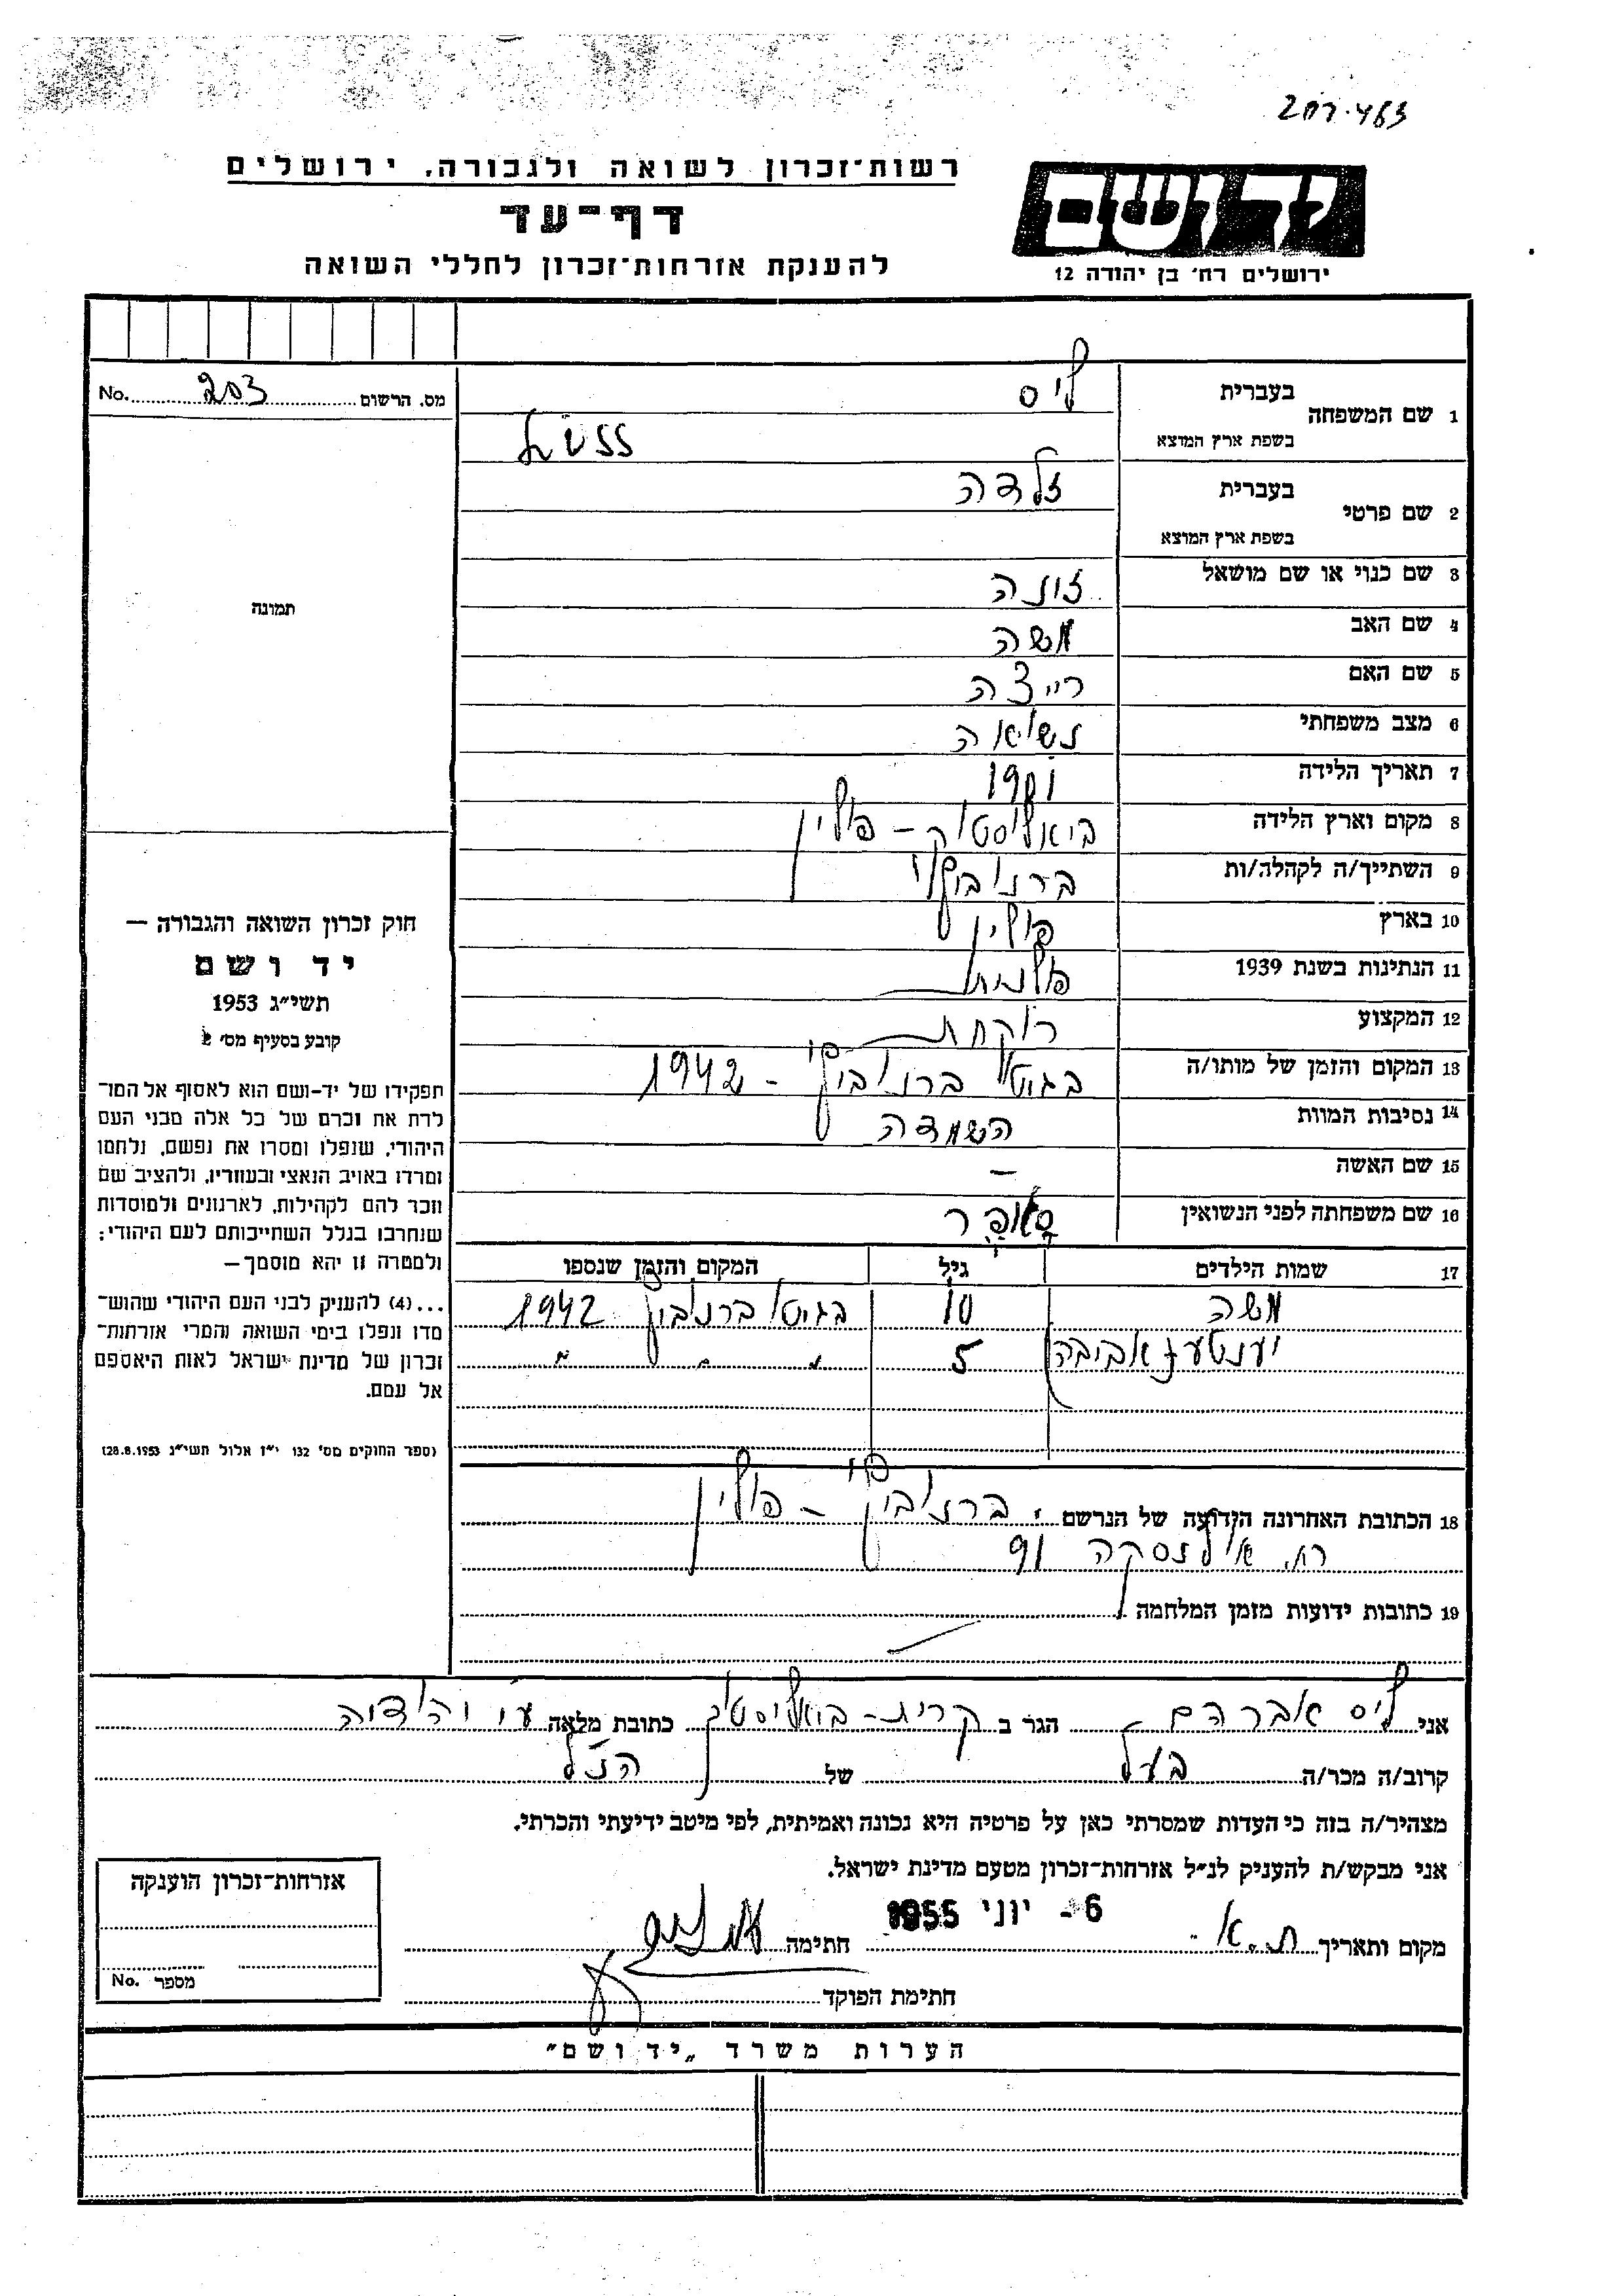 207.463
רשות־זכרון לשואה ולגבורה, ירושלים
דף־עד
להענקת אזרחות־זכרון לחללי השואה
ידושם
ירושלים רח׳ בן יהודה 12
No. 203 מס. הרשום
תמונה
חוק זכרון השואה והגבורה —
יד ושם
תשי״ג 1953
קובע בסעיף מס׳ 2
תפקידו של יד-ושם הוא לאסוף אל המו־
לדת את זכרם של כל אלה מבני העם
היהודי, שנפלו ומסרו את נפשם, נלחמו
ומרדו באויב הנאצי ובעוזריו, ולהציב שם
וזכר להם לקהילות, לארגונים ולמוסדות
שנחרבו בגלל השתייכותם לעם היהודי;
ולמטרה זו יהא מוסמך—
...(4) להעניק לבני העם היהודי שהוש־
מדו ונפלו בימי השואה והמרי אזרחות־
זכרון של מדינת ישראל לאות היאספם
אל עמם.
(ספר החוקים מס׳ 132 י״ז אלול תשי״ג 28.8.1953)
1 שם המשפחה בעברית ליס
בשפת ארץ המוצא
2 שם פרטי בעברית זלדה
בשפת ארץ המוצא
3 שם כנוי או שם מושאל זונה
4 שם האב משה
5 שם האם רייצה
6 מצב משפחתי נשואה
7 תאריך הלידה 1901
8 מקום וארץ הלידה ביאליסטוק – פולין
9 השתייך/ה לקהלה/ות
10 בארץ פולין
11 הנתינות בשנת 1939 פולנית
12 המקצוע רוקחת
13 המקום והזמן של מותו/ה בגיטו – 1942
14 נסיבות המוות השמדה
15 שם האשה –
16 שם משפחתה לפני הנשואין
17 שמות הילדים גיל המקום והזמן שנספו
משה 10 בגיטו 1942
אביבה 5 " " "
18 הכתובת האחרונה הידועה של הנרשם – פולין
91
19 כתובות ידועות מזמן המלחמה
אני ליס אברהם הגר ב קרית-ביאליסטוק כתובת מלאה
קרוב/ה מכר/ה בעל של הנ״ל
מצהיר/ה בזה כי העדות שמסרתי כאן על פרטיה היא נכונה ואמיתית, לפי מיטב ידיעתי והכרתי.
אני מבקש/ת להעניק לנ״ל אזרחות-זכרון מטעם מדינת ישראל.
מקום ותאריך ת.א. 6 - יוני 1955 חתימה
חתימת הפוקד
אזרחות-זכרון הוענקה
מספר No.
הערות משרד „יד ושם"